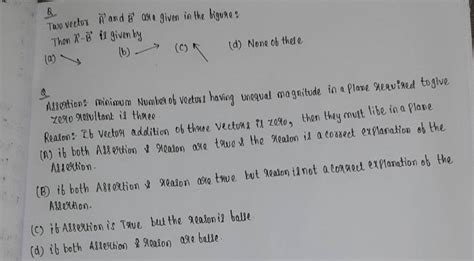 Q
Two vector A⃗ and B⃗ are given in the figure:
Then A⃗-B⃗ is given by
(a) (b) (c) (d) None of these
Q
Assertion: minimum Number of vectors having unequal magnitude in a plane required to give
zero resultant is three
Reason: If vector addition of three vectors is zero, then they must lie in a plane
(A) if both Assertion & Reason are true & the Reason is a correct explanation of the
Assertion.
(B) if both Assertion & Reason are true but Reason is not a correct explanation of the
Assertion.
(c) if Assertion is True but the reason is false
(d) if both Assertion & reason are false.